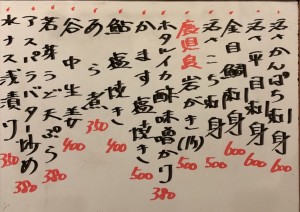 活〆かんぱち刺身 600
活〆平目刺身 600
金目鯛刺身 600
活〆こち刺身 500
岩がき(1ヶ) 500
ホタルイカ酢味噌がけ 380
かます塩焼き 500
鮎塩焼き 400
あら煮 350
谷中生姜 400
若芽うど天ぷら 380
アスパラバター炒め 380
水ナス浅漬け 350